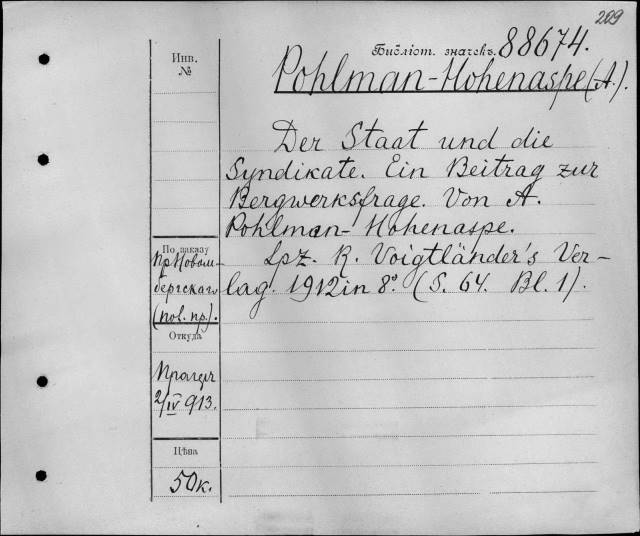 209
Библіот. значекъ. 88674.
Инв.
№
Pohlman-Hohenaspe (A.).
Der Staat und die
Syndikate. Ein Beitrag zur
Bergwerksfrage. Von A.
Pohlman-Hohenaspe.
Lpz. R. Voigtländer's Ver-
lag. 1912 in 8º. (S. 64. Bl. 1).
По заказу
Пр. Новом-
бергскаго
(пов. пр.).
Откуда
2/IV 913.
Цѣна
50 к.